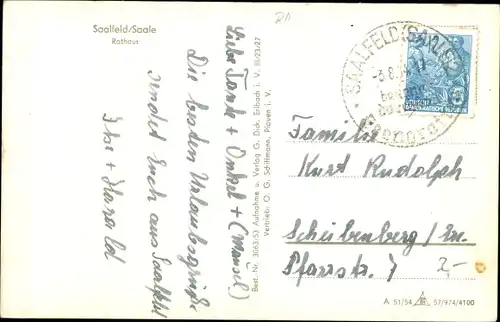 Saalfeld/Saale
Rathaus
Liebe Tante + Onkel + (Mäusel)
Die besten Urlaubsgrüße
sendet Euch aus Saalfeld
Ilse + Harald
Best. Nr. 3063(S) Aufnahme u. Verlag G. Dick, Erlbach i. V. III/23/27
Vertrieb: O. G. Schiffmann, Plauen i. V.
SAALFELD (SAALE)
-3.8.
DEUTSCHE
DEMOKRATISCHE REPUBLIK
5
Familie
Kurt Rudolph
Scheibenberg/Erz.
Pfarrstr. 7
2,-
A 51/54 57/974/4100